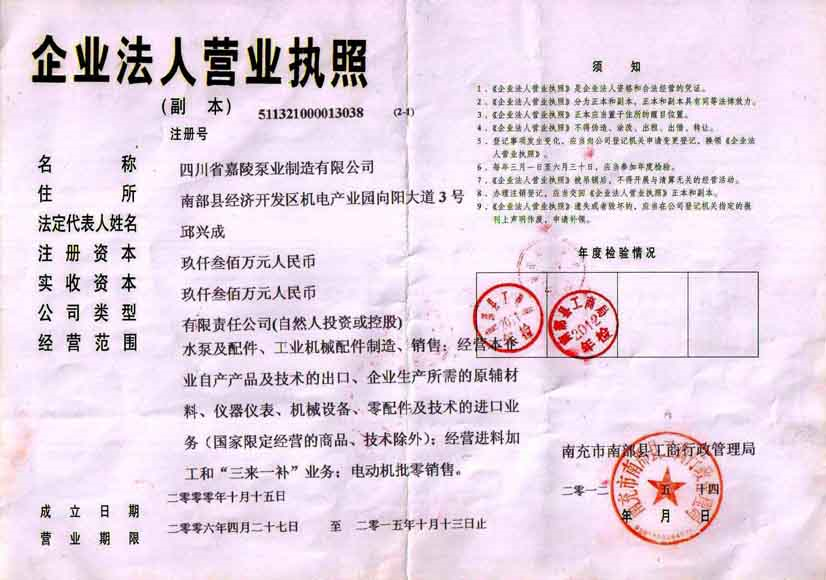 企业法人营业执照
(副 本) 511321000013038 (2-1)
注册号
名 称 四川省嘉陵泵业制造有限公司
住 所 南部县经济开发区机电产业园向阳大道3号
法定代表人姓名 邱兴成
注册资本 玖仟叁佰万元人民币
实收资本 玖仟叁佰万元人民币
公司类型 有限责任公司(自然人投资或控股)
经营范围 水泵及配件、工业机械配件制造、销售；经营本企
业自产产品及技术的出口、企业生产所需的原辅材
料、仪器仪表、机械设备、零配件及技术的进口业
务（国家限定经营的商品、技术除外）；经营进料加
工和“三来一补”业务；电动机批零销售。
成立日期 二〇〇〇年十月十五日
营业期限 二〇〇六年四月二十七日 至 二〇一五年十月十三日止
须 知
1、《企业法人营业执照》是企业法人资格和合法经营的凭证。
2、《企业法人营业执照》分为正本和副本，正本和副本具有同等法律效力。
3、《企业法人营业执照》正本应当置于住所的醒目位置。
4、《企业法人营业执照》不得伪造、涂改、出租、出借、转让。
5、登记事项发生变化，应当向公司登记机关申请变更登记，换领《企业法
人营业执照》。
6、每年三月一日至六月三十日，应当参加年度检验。
7、《企业法人营业执照》被吊销后，不得开展与清算无关的经营活动。
8、办理注销登记，应当交回《企业法人营业执照》正本和副本。
9、《企业法人营业执照》遗失或者毁坏的，应当在公司登记机关指定的报
刊上声明作废，申请补领。
年度检验情况
南部县工商局
2011
年份
南部县工商局
2012
年份
南充市南部县工商行政管理局
二〇一二 五 十四
年 月 日